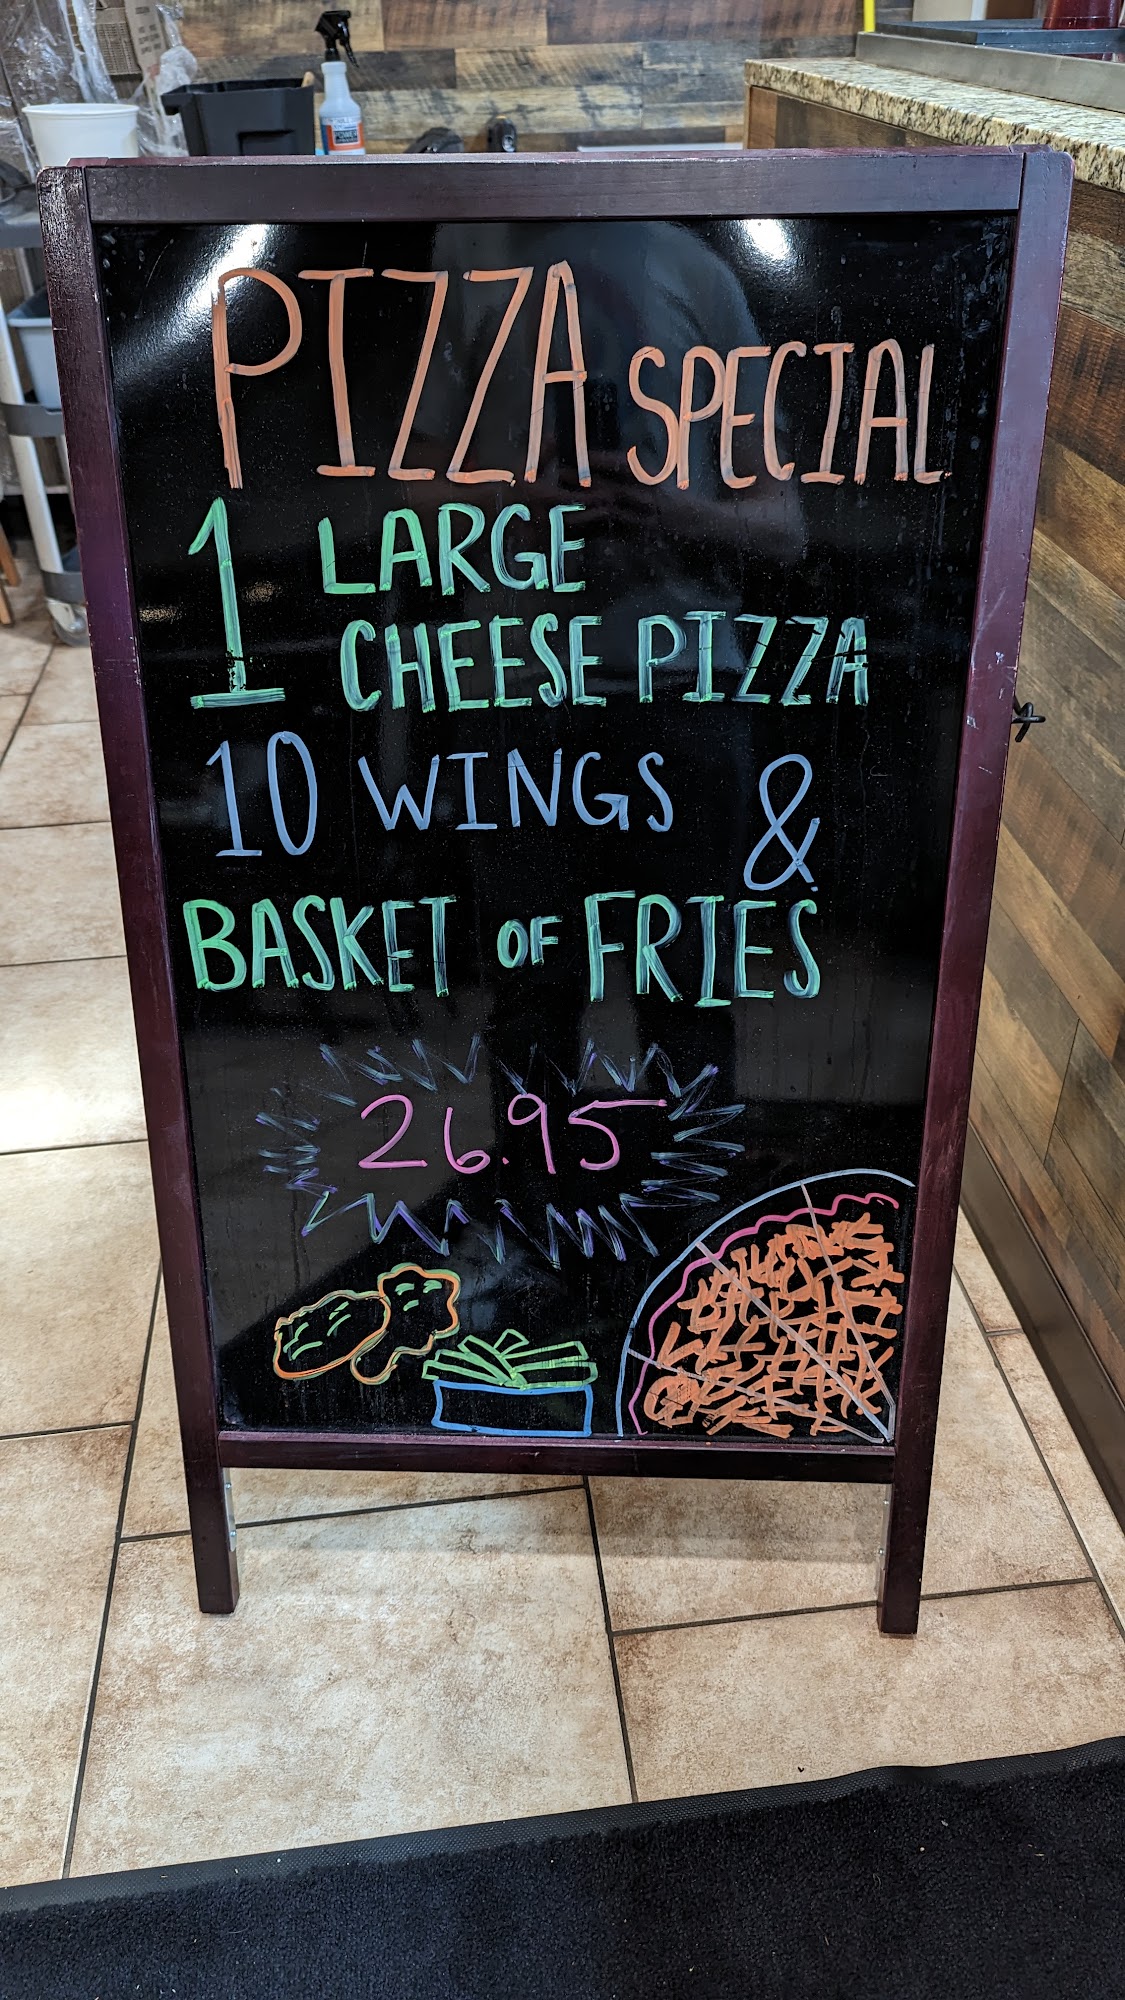 PIZZA SPECIAL
1 LARGE
CHEESE PIZZA
10 WINGS &
BASKET OF FRIES
26.95